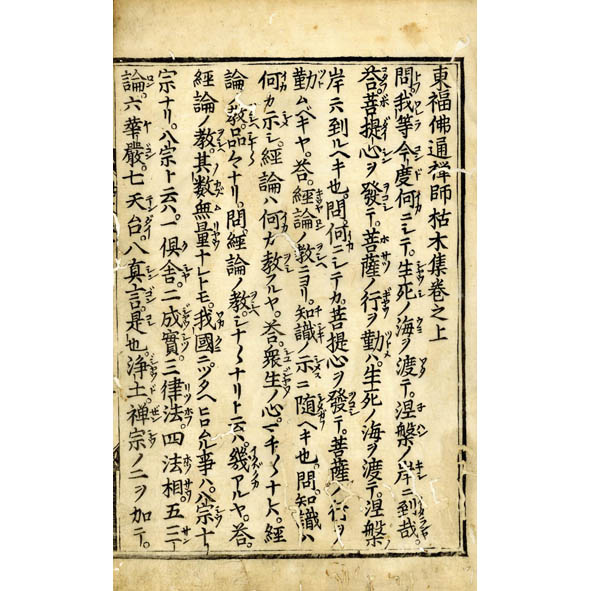 東福佛通禅師枯木集巻之上
問。我等今度何ニシテ。生死ノ海ヲ渡テ。涅槃ノ岸ニ到哉。
荅。菩提心ヲ發テ。菩薩ノ行ヲ勤ハ。生死ノ海ヲ渡テ。涅槃ノ
岸ニ到ルヘキ也。問。何ニシテカ。菩提心ヲ發テ。菩薩ノ行ヲ
勤ムベキヤ。荅。經論ノ教ニヨリ。知識ノ示ニ隨ヘキ也。問。知識ハ
何カ示シ。經論ハ何カ教フルヤ。荅。衆生ノ心。マチ〱ナレハ。經
論ノ教。品々ナリ。問。經論ノ教。シナ〱ナリト云ハ。幾アルヤ。荅。
經論ノ教。其数無量ナレトモ。我國ニツタヘヒロムル事ハ。八宗ナリ。
宗ナリ。八宗ト云ハ。一倶舎。二成實。三律法。四法相。五三
論。六華嚴。七天台。八真言。是也。浄土。禅宗ノ二ヲ加テ。